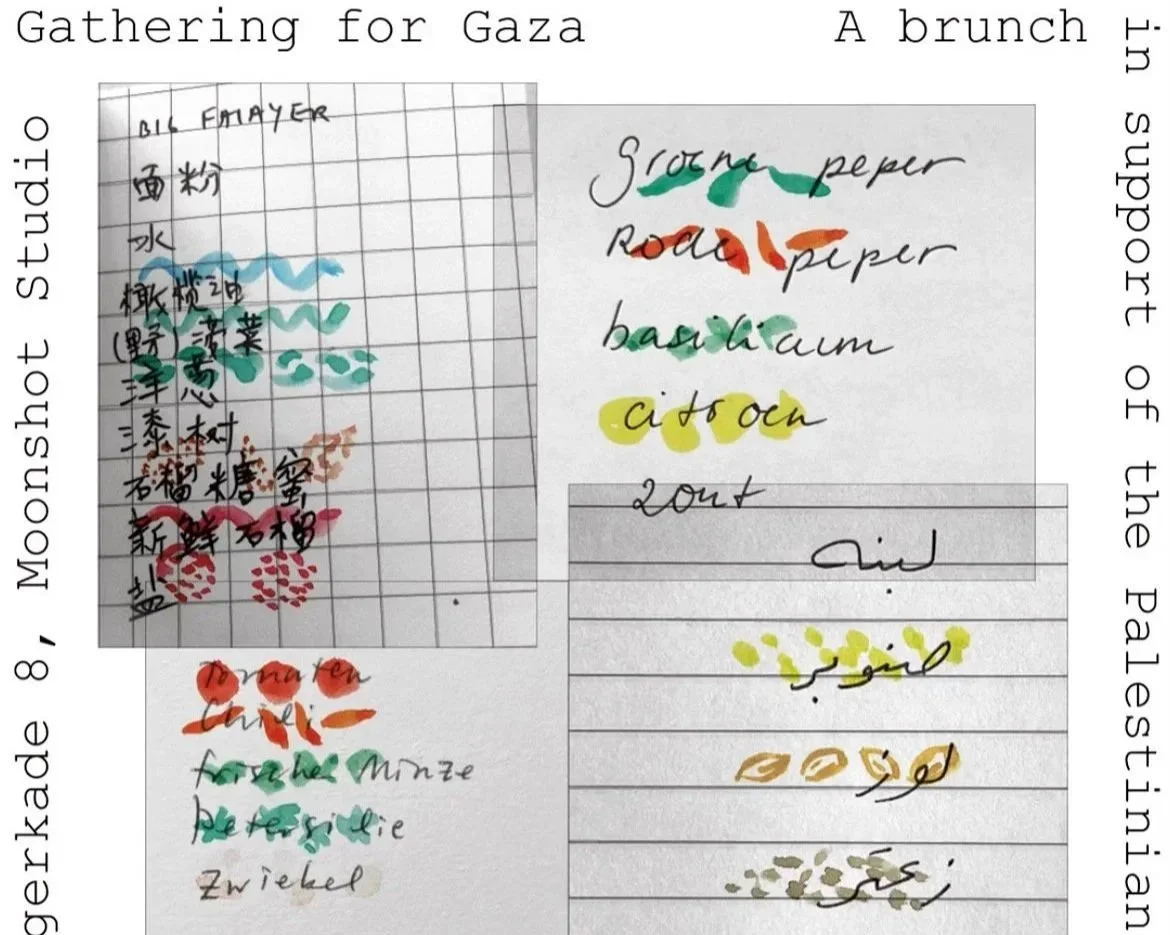 Gathering for Gaza
A brunch
in support of the Palestinian
gerkade 8, Moonshot Studio
BIG FATAYER
面粉
水
橄榄油
(野)菠菜
洋葱
漆树
石榴糖蜜
新鲜石榴
盐
groene peper
Rode peper
basilicum
citroen
zout
لبنه
صنوبر
لوز
زعتر
Tomaten
Chili
frische Minze
Petersilie
Zwiebel